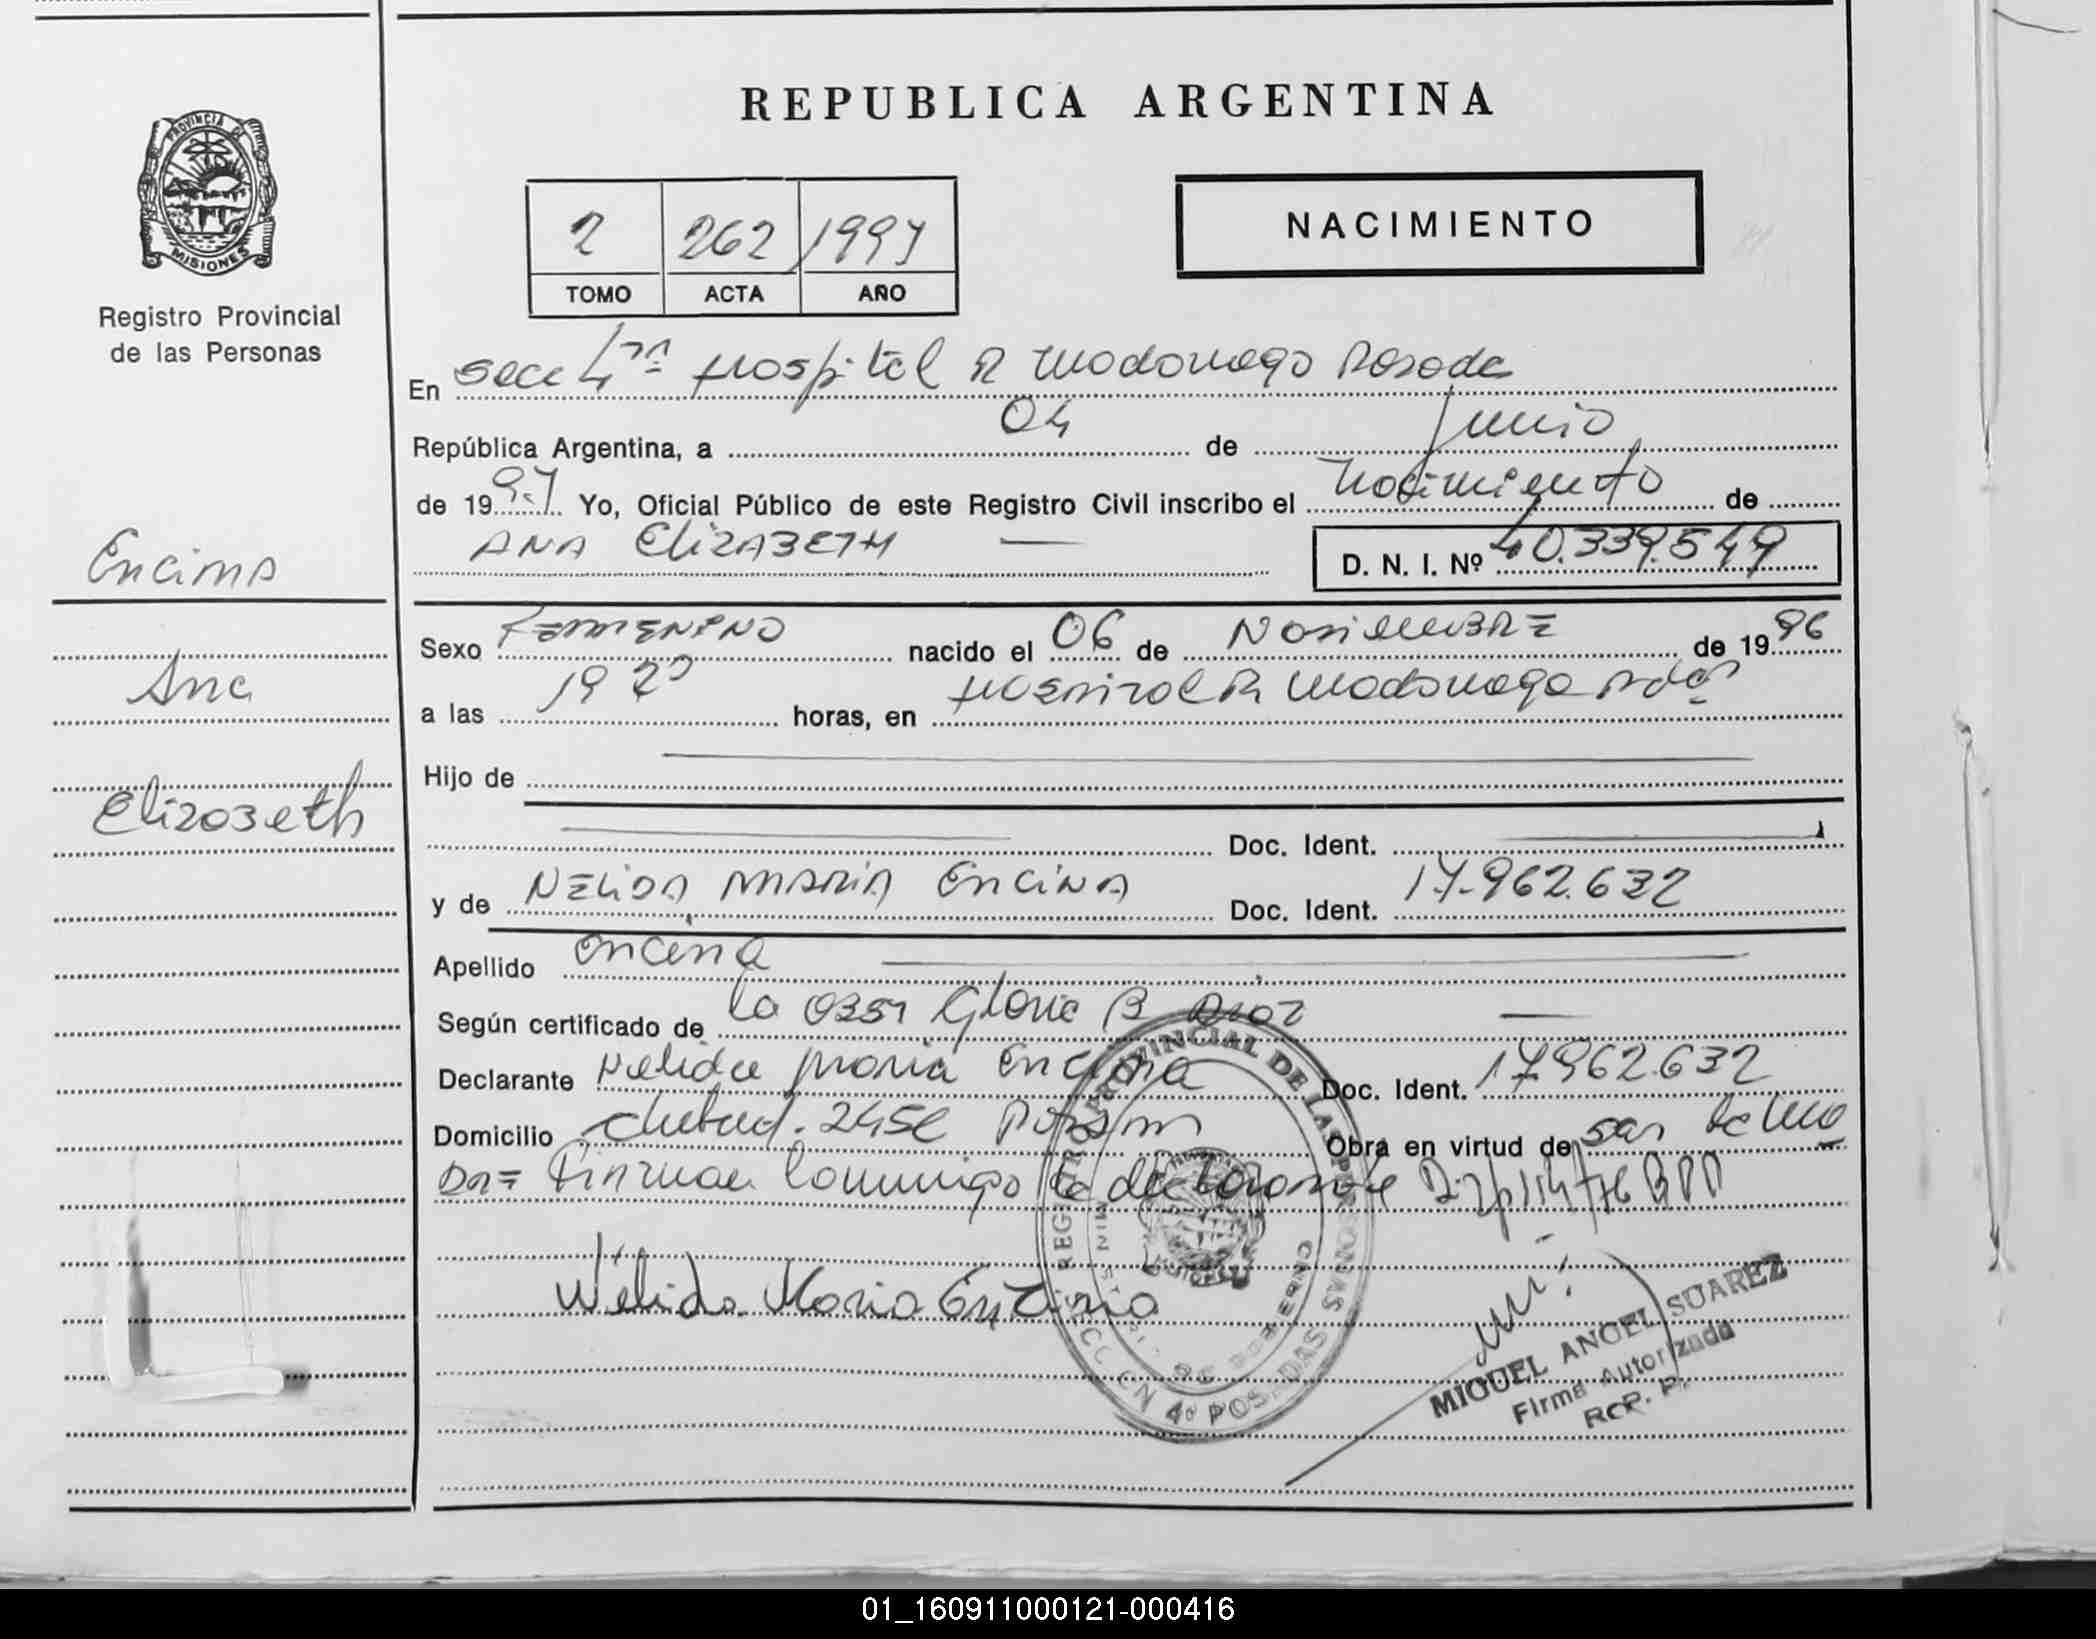 REPUBLICA ARGENTINA
PROVINCIA DE MISIONES
Registro Provincial
de las Personas
NACIMIENTO
2 262 1997
TOMO ACTA AÑO
En Secc 4ta Hospital R Madariaga Posadas
República Argentina, a 04 de Junio
de 1997 Yo, Oficial Público de este Registro Civil inscribo el Nacimiento de
ANA ElizABETH
D. N. I. Nº 40.339.549
Encina
Ana
Elizabeth
Sexo Femenino nacido el 06 de Noviembre de 1996
a las 19 horas, en Hospital R Madariaga Pdas
Hijo de
Doc. Ident.
y de NELIDA MARIA ENCINA Doc. Ident. 17.962.632
Apellido Encina
Según certificado de la Obst Gloria B
Declarante Nelida Maria Encina Doc. Ident. 17962.632
Domicilio Chubut. 2452 Obra en virtud de
Firman conmigo la declarante
Nélida Maria Encina
REGISTRO PROVINCIAL DE LAS PERSONAS
MINISTERIO DE GOBIERNO
SECCION 4º POSADAS
MIGUEL ANGEL SUAREZ
Firma Autorizada
R. P. P.
01_160911000121-000416